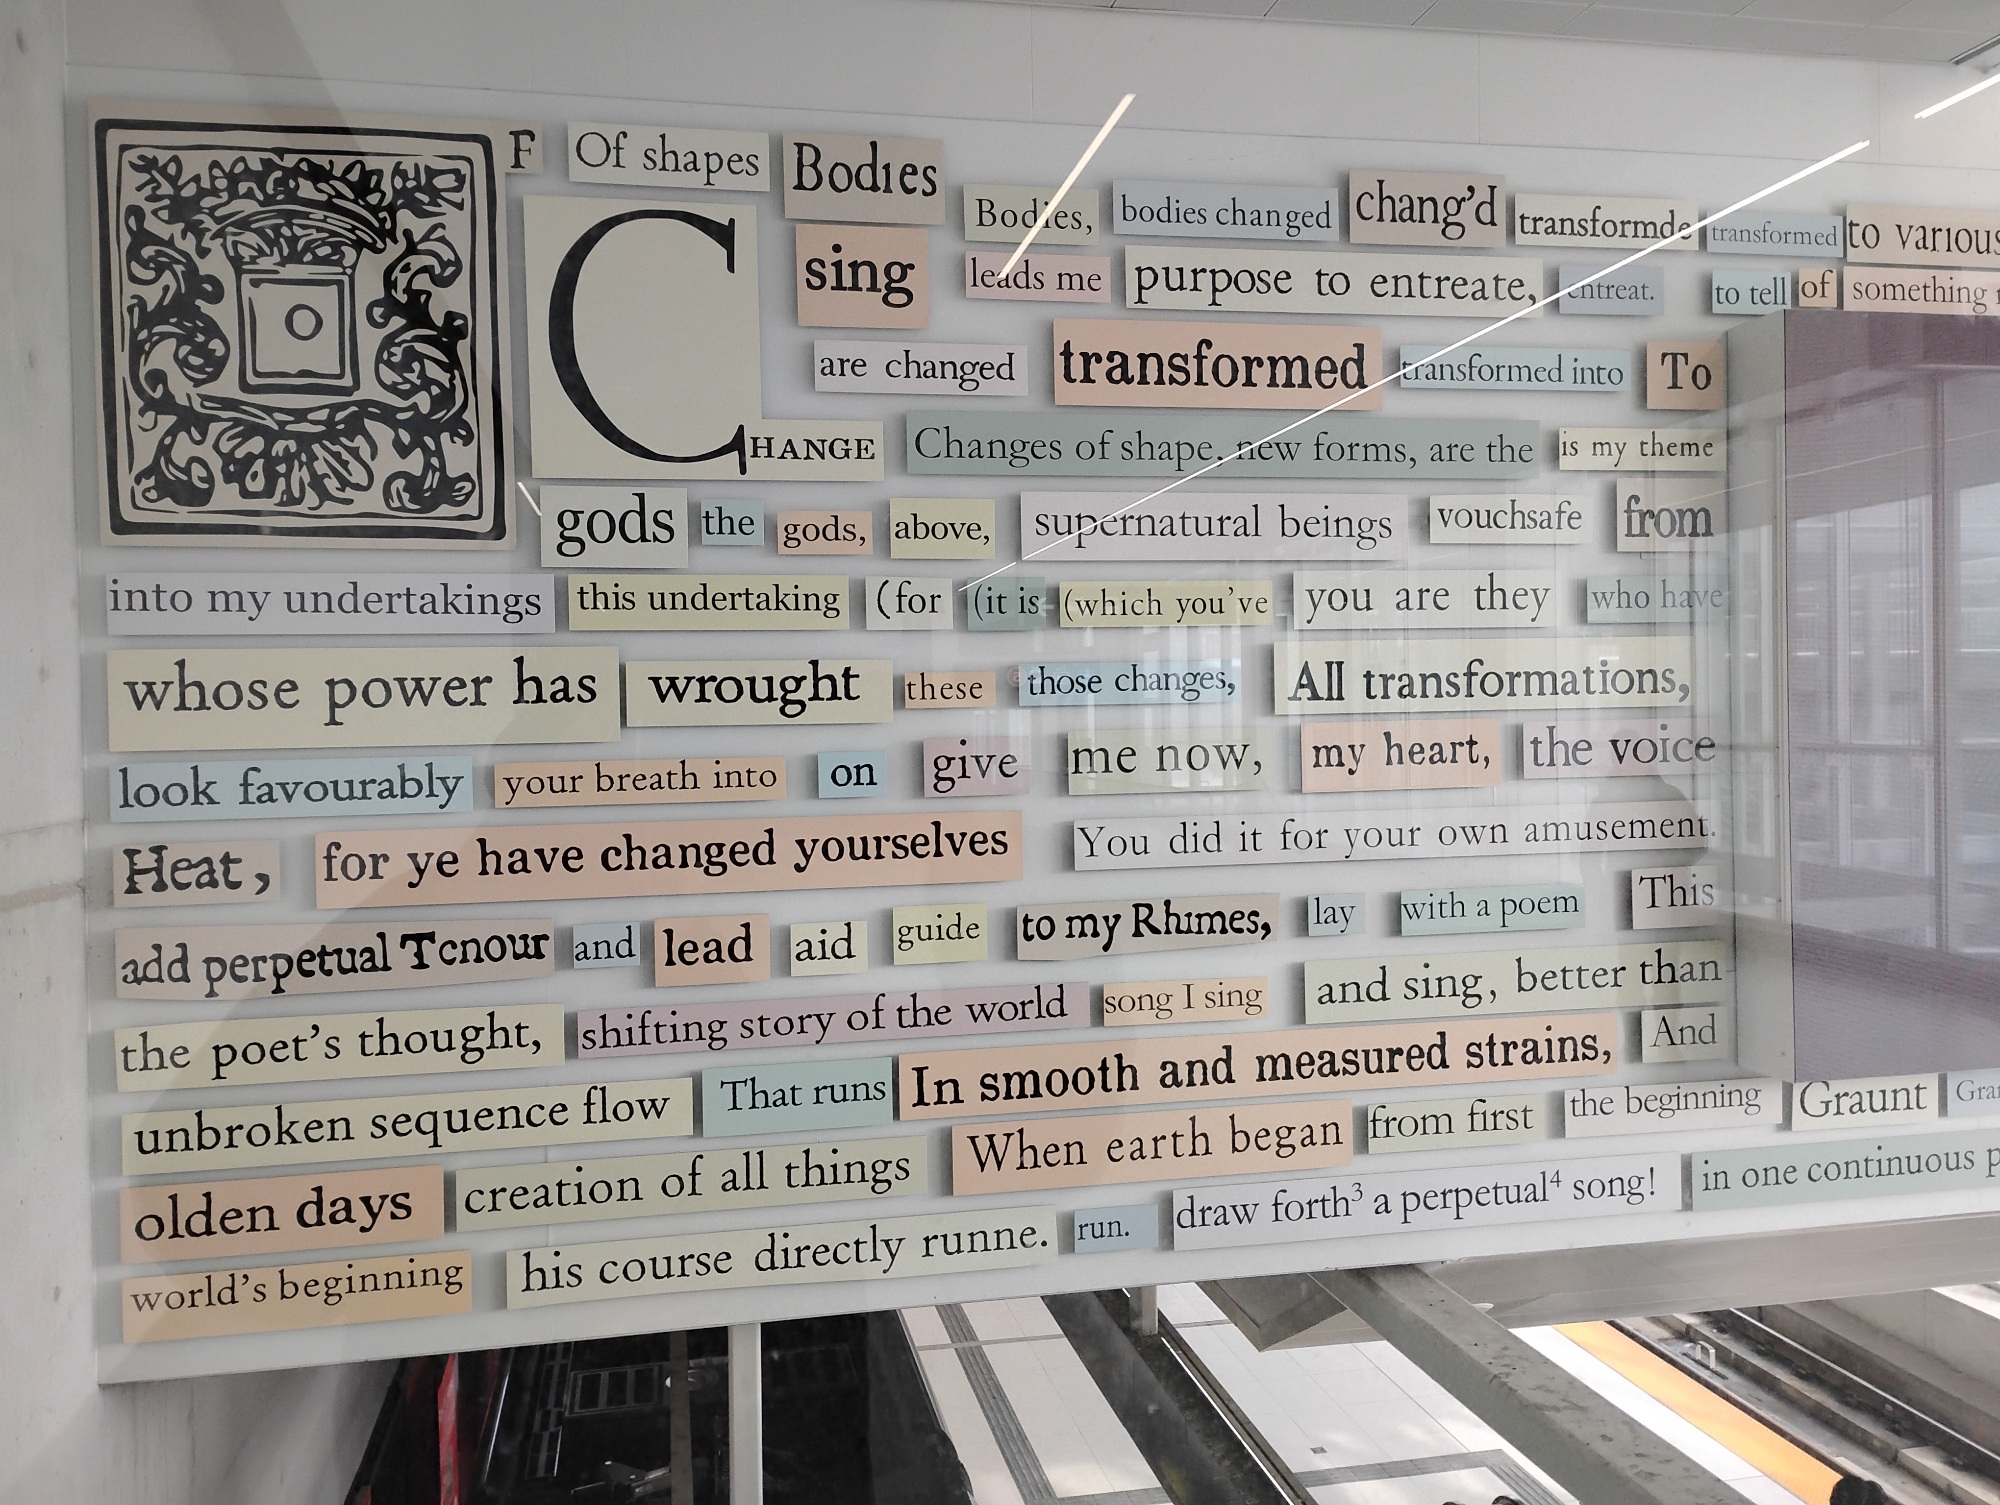 OF Of shapes Bodies Bodies, bodies changed chang'd transformde transformed to various
sing leads me purpose to entreate, entreat. to tell of something
are changed transformed transformed into To
CHANGE Changes of shape, new forms, are the is my theme
gods the gods, above, supernatural beings vouchsafe from
into my undertakings this undertaking (for (it is (which you've you are they who have
whose power has wrought these those changes, All transformations,
look favourably your breath into on give me now, my heart, the voice
Heat, for ye have changed yourselves You did it for your own amusement.
add perpetual Tenour and lead aid guide to my Rhimes, lay with a poem This
the poet's thought, shifting story of the world song I sing and sing, better than
unbroken sequence flow That runs In smooth and measured strains, And
olden days creation of all things When earth began from first the beginning Graunt
world's beginning his course directly runne. run. draw forth³ a perpetual⁴ song! in one continuous